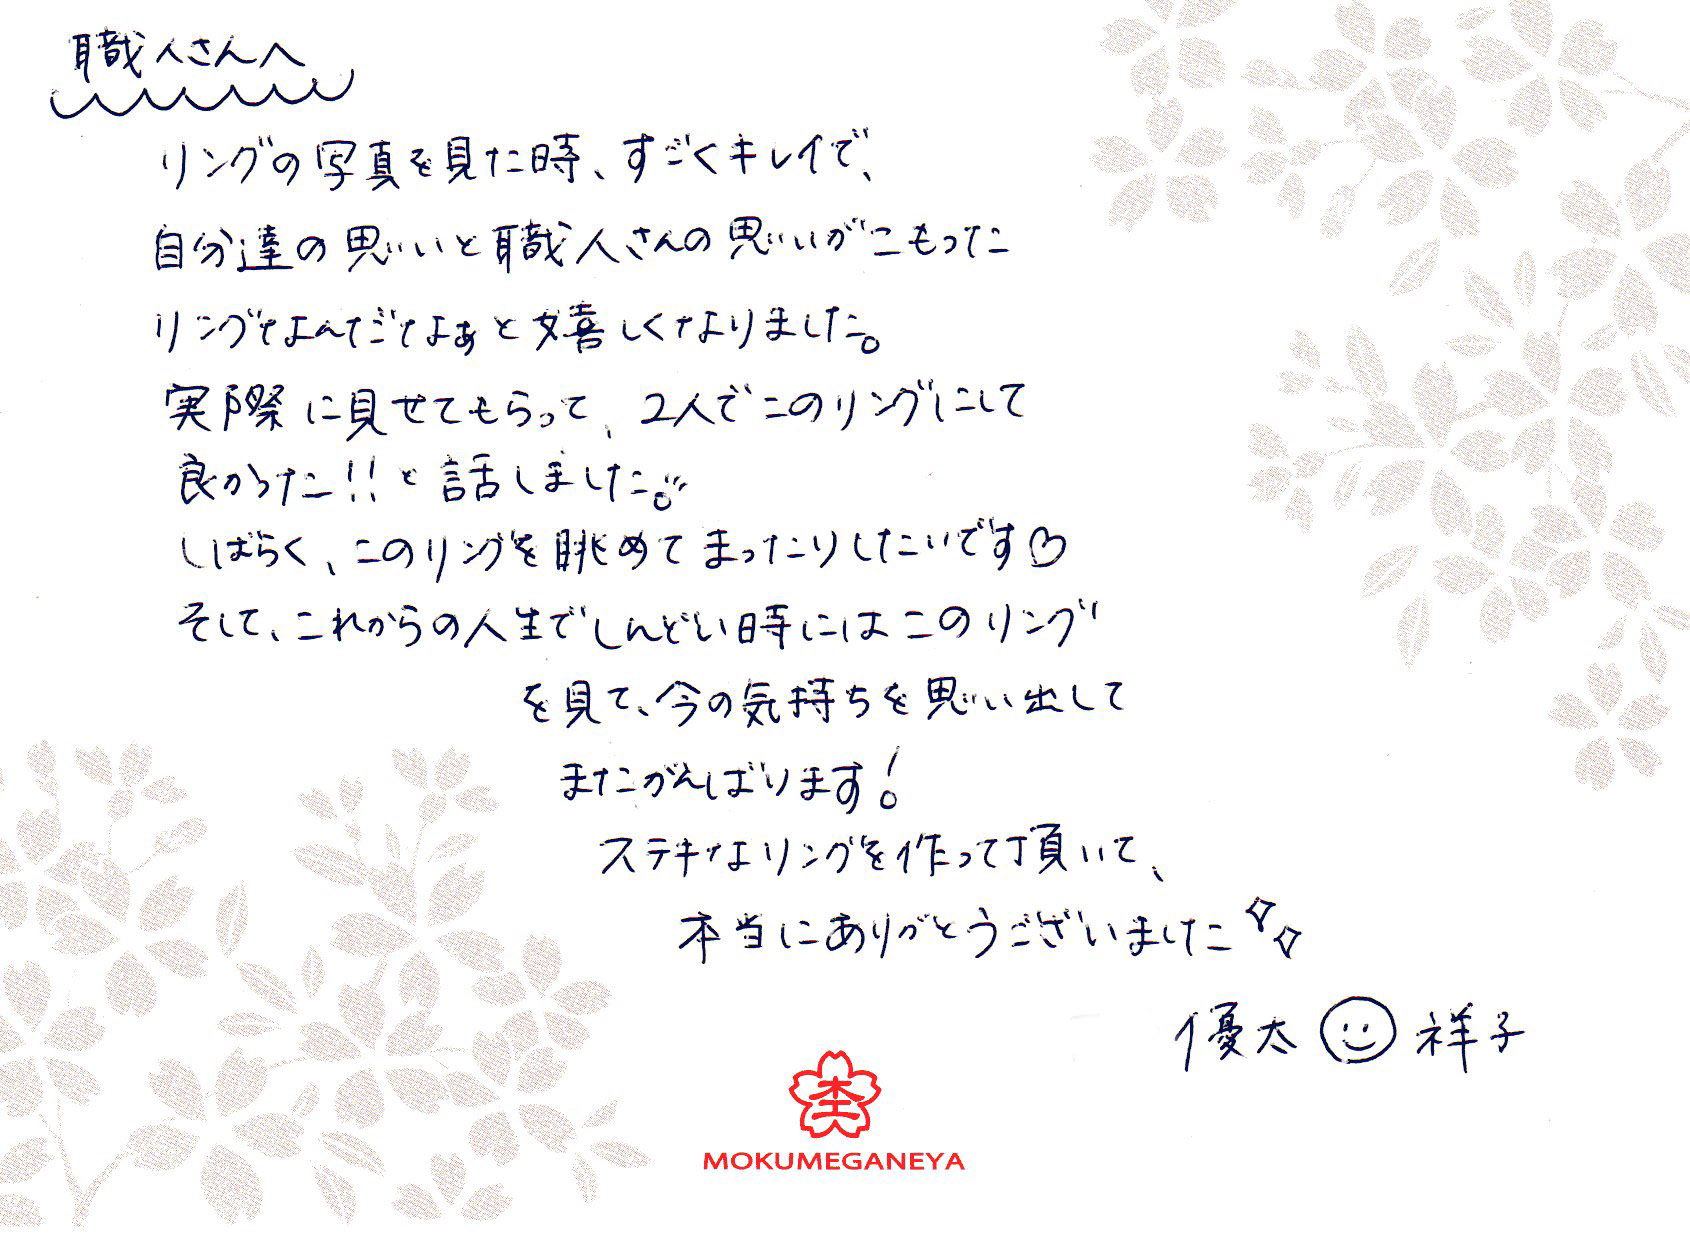 職人さんへ
リングの写真を見た時、すごくキレイで、
自分達の思いと職人さんの思いがこもった
リングなんだなぁと嬉しくなりました。
実際に見せてもらって、2人でこのリングにして
良かった!!と話しました。
しばらく、このリングを眺めてまったりしたいです♡
そして、これからの人生でしんどい時にはこのリング
を見て、今の気持ちを思い出して
またがんばります!
ステキなリングを作って頂いて、
本当にありがとうございました
優太 祥子
MOKUMEGANEYA